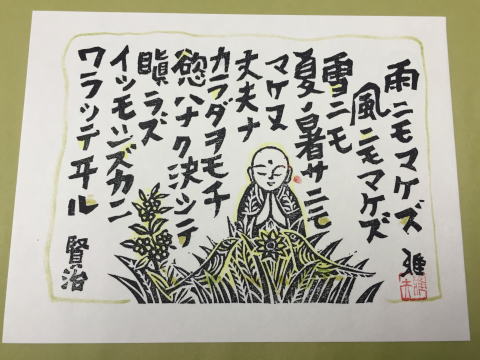 雨ニモマケズ
風ニモマケズ
雪ニモ
夏ノ暑サニモ
マケヌ
丈夫ナ
カラダヲモチ
慾ハナク決シテ
瞋ラズ
イツモシズカニ
ワラッテヰル
賢治